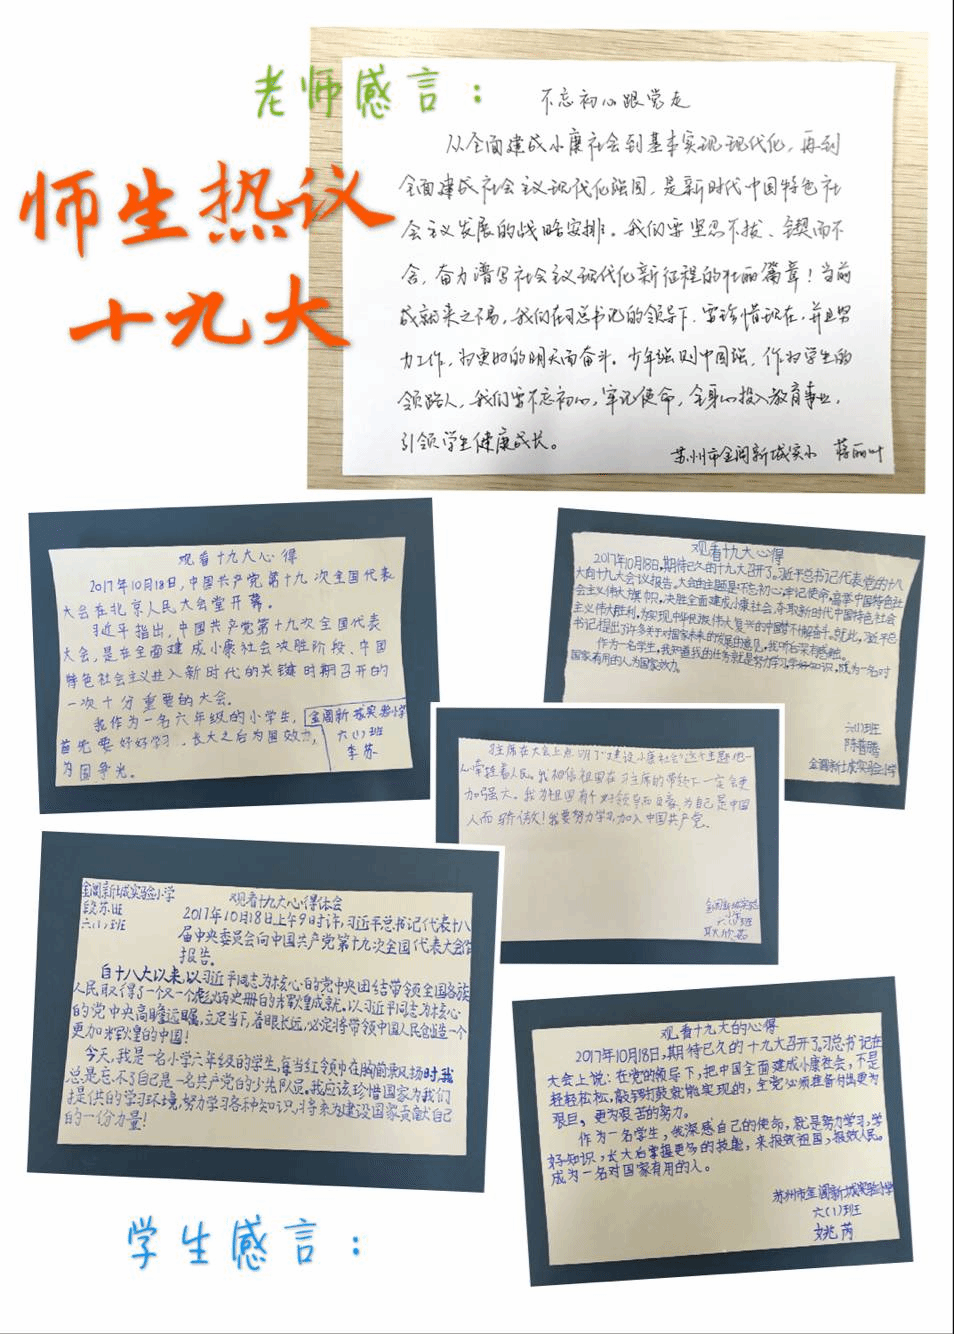 老师感言：
师生热议
十九大
不忘初心跟党走
从全面建成小康社会到基本实现现代化，再到
全面建成社会主义现代化强国，是新时代中国特色社
会主义发展的战略安排。我们要坚忍不拔、锲而不
舍，奋力谱写社会主义现代化新征程的壮丽篇章！当前
成就来之不易，我们在习总书记的领导下，要珍惜现在，并且努
力工作，为更好的明天而奋斗。少年强则中国强，作为学生的
领路人，我们要不忘初心，牢记使命，全身心投入教育事业，
引领学生健康成长。
苏州市金阊新城实小 蒋丽叶
观看十九大心得
2017年10月18日，中国共产党第十九次全国代表
大会在北京人民大会堂开幕。
习近平指出，中国共产党第十九次全国代表
大会，是在全面建成小康社会决胜阶段、中国
特色社会主义进入新时代的关键时期召开的
一次十分重要的大会。
我作为一名六年级的小学生，
首先要好好学习，长大之后为国效力，
为国争光。
金阊新城实验小学
六(1)班
李苏
观看十九大心得
2017年10月18日，期待已久的十九大召开了。习近平总书记代表党的十八
大向十九大会议报告。大会的主题是：不忘初心，牢记使命，高举中国特色社
会主义伟大旗帜，决胜全面建成小康社会，夺取新时代中国特色社会
主义伟大胜利，为实现中华民族伟大复兴的中国梦不懈奋斗。就此，习近平总
书记提出了许多关于对国家未来的发展的意见，我听后深有感触。
作为一名学生，我知道我的任务就是努力学习，学好知识，成为一名对
国家有用的人为国家效力。
六(1)班
陈普腾
金阊新城实验小学
主席在大会上点明了"建设小康社会"这个主题，他一
心牵挂着人民。我相信祖国在习主席的带领下一定会更
加强大。我为祖国有个好领导而自豪，为自己是中国
人而骄傲！我要努力学习，加入中国共产党。
金阊新城实验
小学
六(1)班
金阊新城实验小学
段苏旺
六(1)班
观看十九大心得体会
2017年10月18日上午9时许，习近平总书记代表十八
届中央委员会向中国共产党第十九次全国代表大会作
报告。
自十八大以来，以习近平同志为核心的党中央团结带领全国各族
人民取得了一个又一个彪炳史册的辉煌成就。以习近平同志为核心
的党中央高瞻远瞩，立足当下，着眼长远，必定将带领中国人民创造一个
更加辉煌的中国！
今天，我是一名小学六年级的学生，每当红领巾在胸前飘扬时，我
总是忘不了自己是一名共产党的少先队员。我应该珍惜国家为我们
提供的学习环境，努力学习各种知识，将来为建设国家贡献自己
的一份力量！
观看十九大的心得
2017年10月18日，期待已久的十九大召开了。习总书记在
大会上说：在党的领导下，把中国全面建成小康社会，不是
轻轻松松，敲锣打鼓就能实现的，全党必须准备付出更为
艰巨，更为艰苦的努力。
作为一名学生，我深感自己的使命，就是努力学习，学
好知识，长大后掌握更多的技能，来报效祖国，报效人民。
成为一名对国家有用的人。
苏州市金阊新城实验小学
六(1)班
姚芮
学生感言：